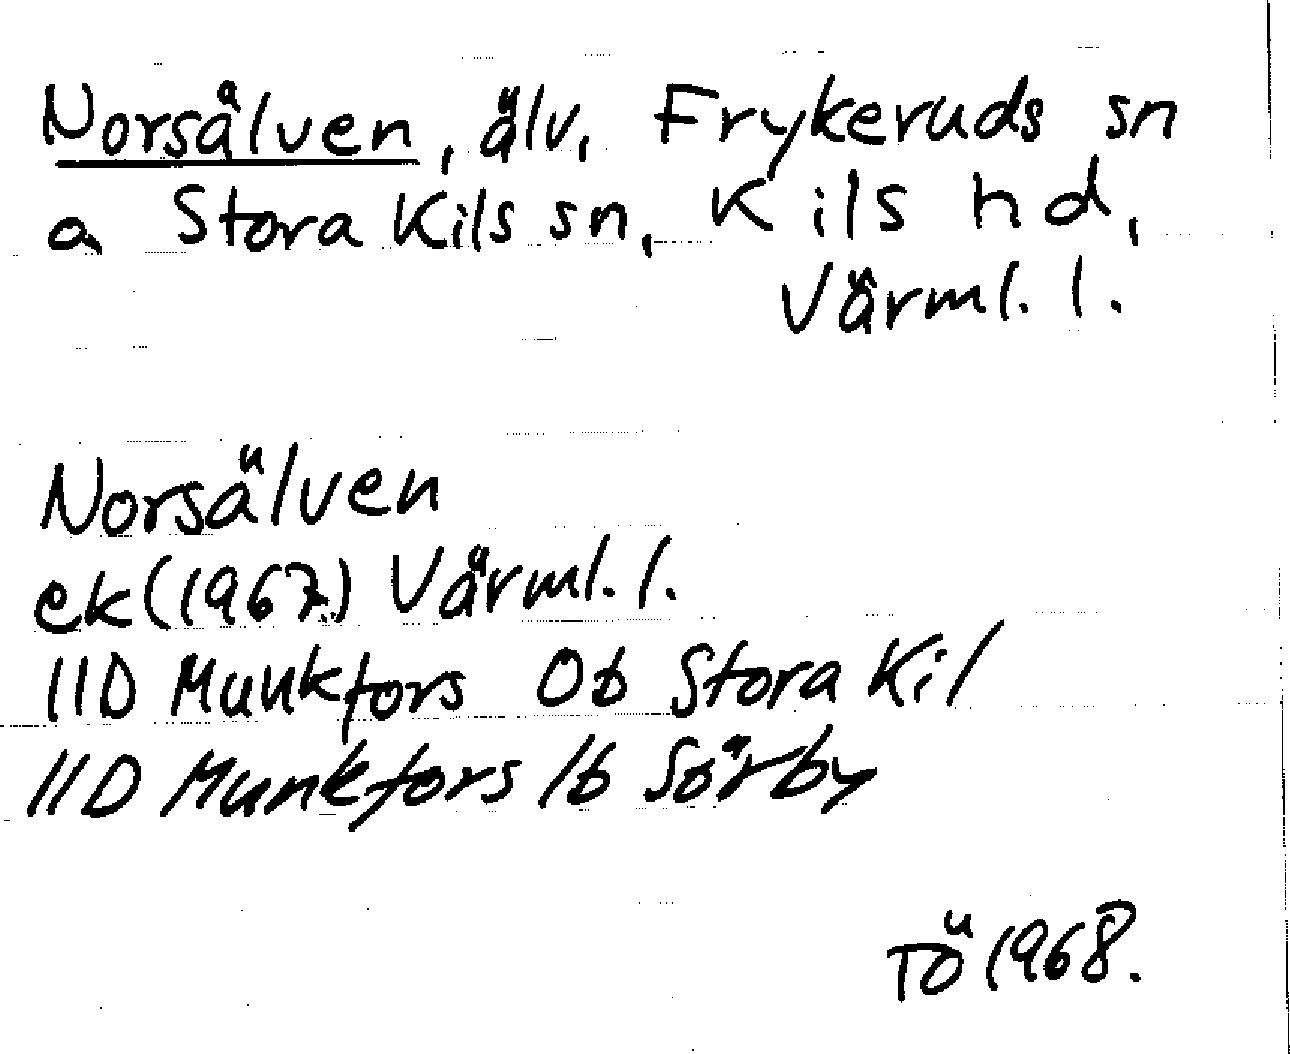 Norsälven, älv, Frykeruds sn
a Stora Kils sn, Kils hd,
Värml. l.
Norsälven
ek (1967) Värml. l.
11D Munkfors 0b Stora Kil
11D Munkfors 1b Sörby
TÖ 1968.